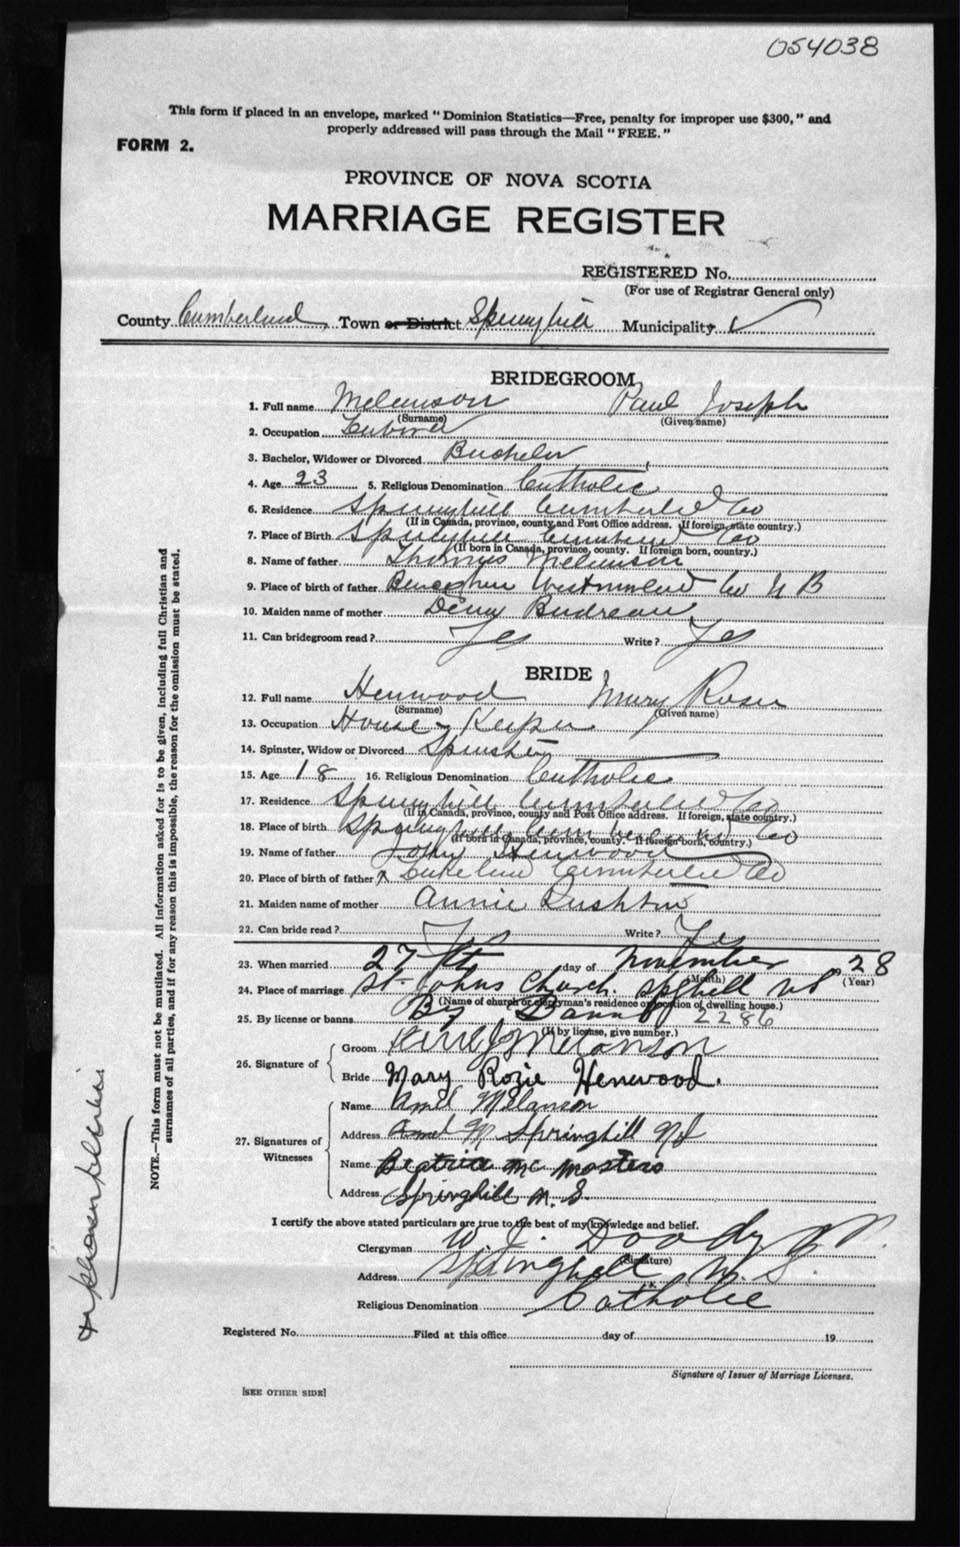 054038
This form if placed in an envelope, marked "Dominion Statistics—Free, penalty for improper use $300," and
properly addressed will pass through the Mail "FREE."
FORM 2.
PROVINCE OF NOVA SCOTIA
MARRIAGE REGISTER
REGISTERED No.
(For use of Registrar General only)
County Cumberland, Town or District Springhill Municipality ✓
BRIDEGROOM
1. Full name Melanson Paul Joseph
(Surname) (Given name)
2. Occupation Laborer
3. Bachelor, Widower or Divorced Bachelor
4. Age 23 5. Religious Denomination Catholic
6. Residence Springhill Cumberland Co
(If in Canada, province, county and Post Office address. If foreign, state country.)
7. Place of Birth Springhill Cumberland Co
(If born in Canada, province, county. If foreign born, country.)
8. Name of father Thomas Melanson
9. Place of birth of father Westmorland Co N B
10. Maiden name of mother Budreau
11. Can bridegroom read? Yes Write? Yes
BRIDE
12. Full name Henwood Mary Rosie
(Surname) (Given name)
13. Occupation House-Keeper
14. Spinster, Widow or Divorced Spinster
15. Age 18 16. Religious Denomination Catholic
17. Residence Springhill Cumberland Co
(If in Canada, province, county and Post Office address. If foreign, state country.)
18. Place of birth Springhill Cumberland Co
(If born in Canada, province, county. If foreign born, country.)
19. Name of father John Henwood
20. Place of birth of father Cumberland Co
21. Maiden name of mother Annie Rushton
22. Can bride read? Yes Write? Yes
23. When married 27th day of November 1928
(Month) (Year)
24. Place of marriage St. Johns Church. Spghill NS
(Name of church or clergyman's residence or location of dwelling house.)
25. By license or banns By Banns 2286
(If by license, give number.)
26. Signature of Groom Paul J Melanson
Bride Mary Rozie Henwood.
27. Signatures of Witnesses
Name Melanson
Address Springhill NS
Name Beatrice McMasters
Address Springhill N.S.
I certify the above stated particulars are true to the best of my knowledge and belief.
Clergyman W. J. Doody P.P.
(Signature)
Address Springhill N.S.
Religious Denomination Catholic
Registered No. Filed at this office day of 19
Signature of Issuer of Marriage Licenses.
[SEE OTHER SIDE]
NOTE.—This form must not be mutilated. All information asked for is to be given, including full Christian and
surnames of all parties, and if for any reason this is impossible, the reason for the omission must be stated.